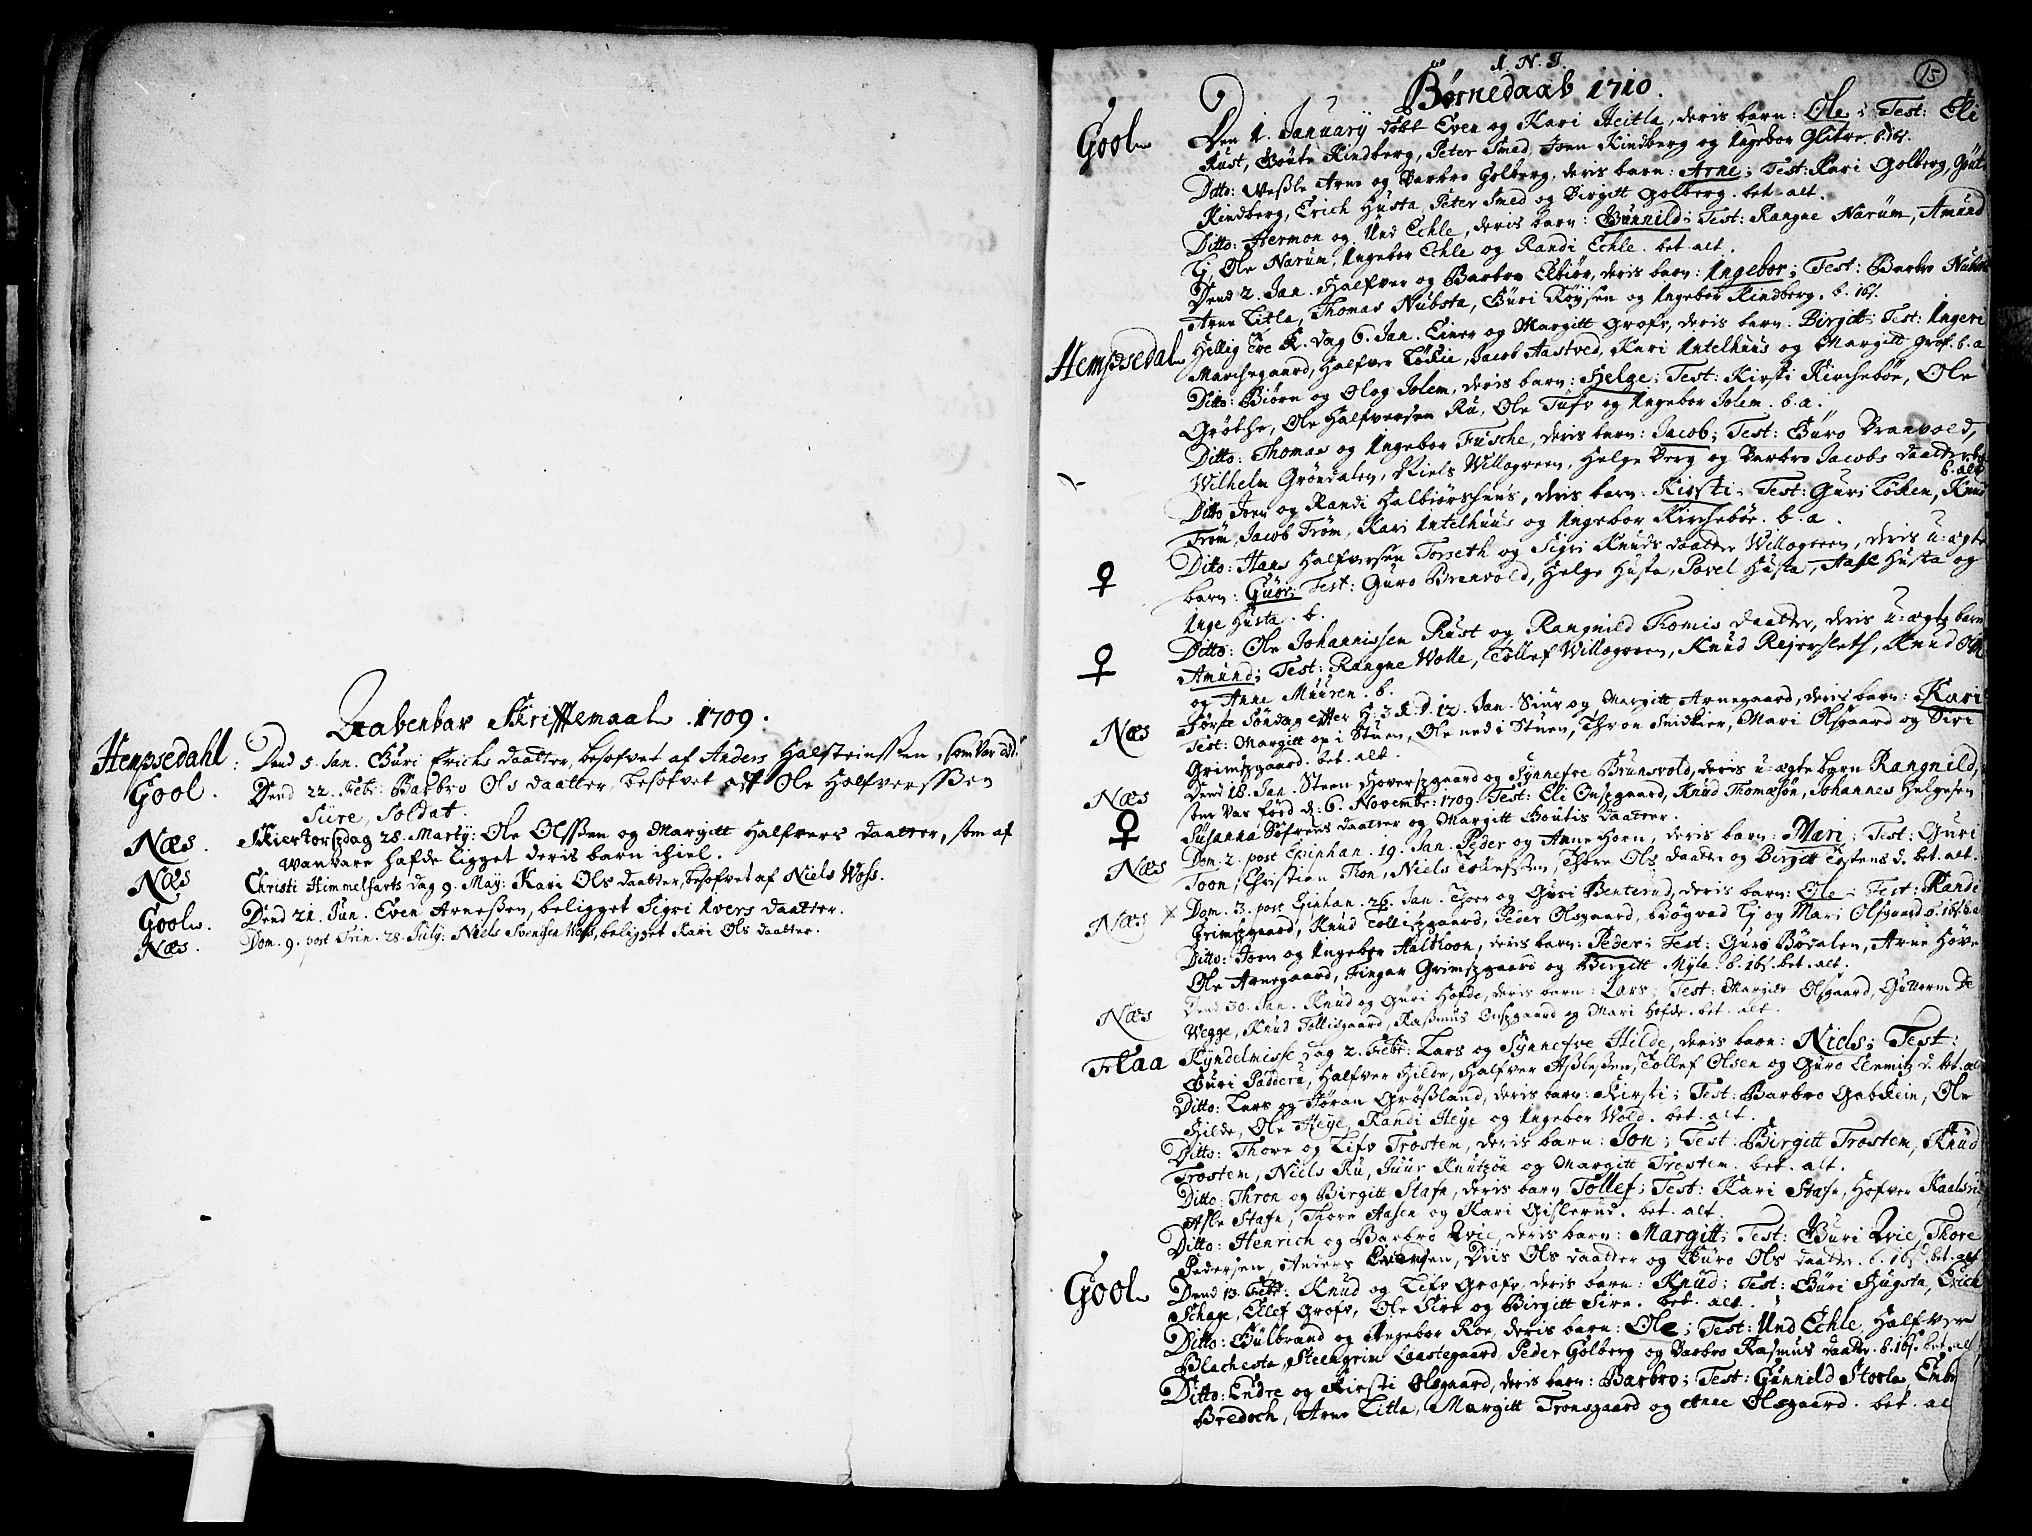 Aabenbar Skriftemaal 1709.
Hempsedahl. Dend 5. Jan. Guri Erichs daatter, besofvet af Anders Halfsteinssen, som var död
Gool. Dend 22. Febr: Barbro Ols daatter, besofvet af Ole Halfverssen
Sire, Soldat.
Næs. Skiertorsdag 28. Martij: Ole Olssen og Margitt Halfvers daatter, som af
Wanvare hafde ligget deris barn ihiel.
Næs Christi Himmelfarts dag 9. Maij: Kari Ols daatter, besofvet af Niels Woss.
Gool. Dend 21. Jun. Even Arnessen, beligget Sigri Ivers daatter.
Næs. Dom. 9. post Trin. 28. Julij: Niels Svensen Woss, beligget Kari Ols daatter.
15
I. N. J.
Børnedaab 1710.
Gool Den 1. Januarij döbt Even og Kari Heitla, deris barn: Ole; Test: Eli
Rust, Goute Kindberg, Peter Smed, Joen Kindberg og Ingebor Glitre b. 16s.
Ditto: Wessle Arne og Barbro Golberg, deris barn: Arne; Test: Kari Golberg, Gout
Kindberg, Erich Husta, Peter Smed og Birgitt Golberg. bet. alt.
Ditto: Hermon og Und Echle, deris barn: Gunnild; Test: Rangne Narum, Amund
Ty, Ole Narum, Ingebor Echle og Randi Echle. bet. alt.
Dend 2. Jan. Halfver og Barbro Eebiör, deris barn: Ingebor; Test: Barbro Nubsta
Arne Litla, Thomas Nubsta, Guri Röysen og Ingebor Kindberg. b. 16s.
Hempsedal Hellig Tre K. dag 6. Jan. Einer og Margitt Grofv, deris barn. Birgitt; Test: Ingeri
Marchegaard, Halfver Löckie, Jacob Aastved, Kari Intelhuus og Margitt Grof. b. a
Ditto: Biörn og Olog Jolem, deris barn: Helge; Test: Kirsti Kirchebøe, Ole
Gröthe, Ole Halfversen Ru, Ole Tufv og Ingebor Jolem. b. a.
Ditto: Thomas og Ingebor Fusche, deris barn: Jacob; Test: Guro Branvold,
Wilhelm Gröndalen, Niels Willogreen, Helge Berg og Barbro Jacobs daatter
b. alt
Ditto Joen og Randi Halbiörshuus, deris barn: Kirsti; Test: Guri Löken, Knud
Tröm, Jacob Tröm, Kari Intelhuus og Ingebor Kirchebøe. b. a.
♀ Ditto: Hans Halfversen Torseth og Sigri Knuds daatter Willogreen, deris u-ægte
barn: Guor; Test: Guro Branvold, Helge Husta, Povel Husta, Aase Husta og
Inge Husta. b.
♀ Ditto: Ole Johannissen Rust og Rangnild Thomis daatter, deris u-ægte barn
Amund; Test: Rangne Wolle, Tollef Willogreen, Knud Rejersleth, Knud
og Anne Muuren. b.
Næs Förste Söndag efter H. 3. K. D. 12. Jan. Siur og Margitt Arnegaard, deris barn: Kari
Test: Margitt op i Stuen, Ole ned i Stuen, Thron Snidker, Mari Olsgaard og Siri
Grimsgaard. bet. alt.
Næs Dend 18. Jan. Steen Hoversgaard og Synnefve Brunsvold, deris u-ægte barn Rangnild,
♀ som var född d: 6. Novembr: 1709. Test: Eli Onsgaard, Knud Thomæsön, Johannes Helgesen
Susanna Söfrens daatter og Margitt Goutis daatter.
Næs Dom. 2. post Epiphan. 19. Jan. Peder og Anne Hoen, deris barn: Mari; Test: Guri
Toon, Christian Thon, Niels, Thore Ols daatter og Birgitt Tostens d. bet. alt.
Næs × Dom. 3. post Epiphan. 26. Jan. Thor og Guri Benterud, deris barn: Ole; Test: Randi
Grimsgaard, Knud Tollisgaard, Peder Olsgaard, Bögvad Ty og Mari Olsgaard b. 16s.
Ditto: Joen og Ingebor Aalthoen, deris barn: Peder; Test: Guro Bödalen, Arne Höve
Ole Arnegaard, Fingar Grimsgaard og Birgitt Myle. b. 16s. bet. alt.
Næs Dend 30. Jan. Knud og Guri Hofde, deris barn: Lars; Test: Margitt Olsgaard, Gullerm De
Wegge, Knud Tollisgaard, Rasmus Onsgaard og Mari Hofde. bet. alt.
Flaa Kyndelmisse dag 2. Febr: Lars og Synnefve Hilde, deris barn: Niels; Test:
Guri Paddera, Halfver Hilde, Halfver Aslessen, Tollef Olsen og Guro d. bet. alt
Ditto: Lars og Jöran Grössland, deris barn: Kirsti; Test: Barbro Gabklein, Ole
Hilde, Ole Heye, Randi Heye og Ingebor Wold. bet. alt.
Ditto: Thore og Lifv Trostem, deris barn: Jon; Test: Birgitt Trostem, Knud
Trostem, Niels Ru, Juur Knutzön og Margitt Trostem. bet. alt.
Ditto: Thron og Birgitt Stafn, deris barn Tollef; Test: Kari Stafn, Hofver Kaalsru
Asle Stafn, Thore Aasen og Kari Gislerud. bet. alt.
Ditto: Henrich og Barbro Qvie, deris barn: Margitt; Test: Guri Qvie, Thore
Pedersen, Anders, Diis Ols daatter og Guro Ols daatter. b. 16s. bet. alt
Gool Dend 13. Febr: Knud og Lifv Grofv, deris barn: Knud; Test: Guri Hugsta, Erich
Schage, Ellef Grofv, Ole Sire og Birgitt Sire. bet. alt.
Ditto: Gulbrand og Ingebor Roe, deris barn: Ole; Test: Und Echle, Halfver
Blachesta, Steengrim Laastegaard, Peder Golberg og Barbro Rasmus daatter. b. 16s. bet. alt
Ditto: Endre og Kirsti Olsgaard, deris barn: Barbro; Test: Gunnild Storla
Bredoch, Arne Litla, Margitt Tronsgaard og Anne Olsgaard. bet. al